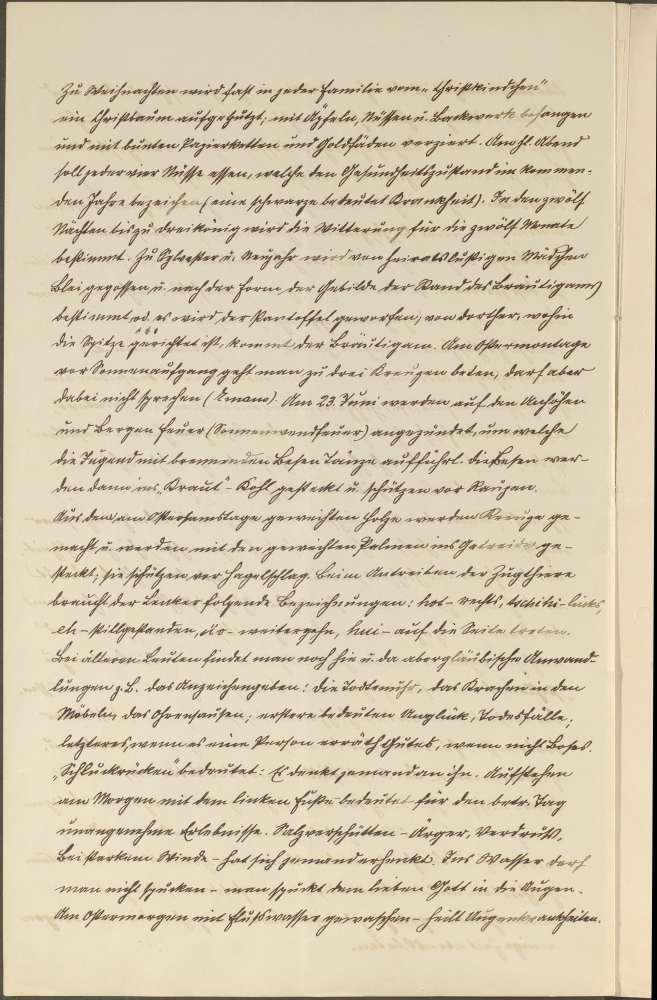 Zu Weihnachten wird fast in jeder Familie vom „Christkindchen"
ein Christbaum aufgeputzt; mit Äpfeln, Nüssen u. Backwerk behangen
und mit bunten Papierketten und Goldfäden verziert. Am hl. Abend
soll jeder vier Nüsse essen, welche den Gesundheitszustand im kommen-
den Jahre bezeichen (eine schwarze bedeutet Krankheit). In den zwölf
Nächten bis zu Dreikönig wird die Witterung für die zwölf Monate
bestimmt. Zu Sylvester u. Neujahr wird von heiratslustigen Mädchen
Blei gegossen u. nach der Form der Gebilde der Stand des Bräutigams
bestimmt, od. es wird der Pantoffel geworfen; von dorther, wohin
die Spitze gerichtet ist, kommt der Bräutigam. Am Ostermontage
vor Sonnenaufgang geht man zu drei Kreuzen beten, darf aber
dabei nicht sprechen (Emaus). Am 23. Juni werden auf den Anhöhen
und Bergen Feuer (Sonnenwendfeuer) angezündet, um welche
die Jugend mit brennenden Besen Tänze aufführt. Die Besen wer-
den dann ins „Kraut" - Kohl gesteckt u. schützen vor Raupen.
Aus dem am Ostersamstage geweihten Holze werden Kreuze ge-
macht u. werden mit den geweihten Palmen ins Getreide ge-
steckt; sie schützen vor Hagelschlag. Beim Antreiben der Zugthiere
braucht der Lenker folgende Bezeichnungen: hot - rechts, tschihi - links,
eh - stillgestanden, üo - weitergehe, hui - auf die Seite treten.
Bei älteren Leuten findet man noch hie u. da abergläubische Anwand-
lungen z. B. das Anzeichengeben: die Todtenuhr, das Krachen in den
Möbeln, das Ohrensausen; erstere bedeuten Unglück, Todesfälle;
letzteres, wenn es eine Person erräth Gutes, wenn nicht Böses.
„Schluckrücken" bedeutet: Es denkt jemand an ihn. Aufstehen
am Morgen mit dem linken Fuße bedeutet für den betr. Tag
unangenehme Erlebnisse. Salzverschütten - Ärger, Verdruß,
Bei starkem Winde - hat sich jemand erhenkt. Ins Wasser darf
man nicht spucken - man spuckt dem lieben Gott in die Augen.
Am Ostermorgen mit Flußwasser gewaschen - heilt Augenkrankheiten.